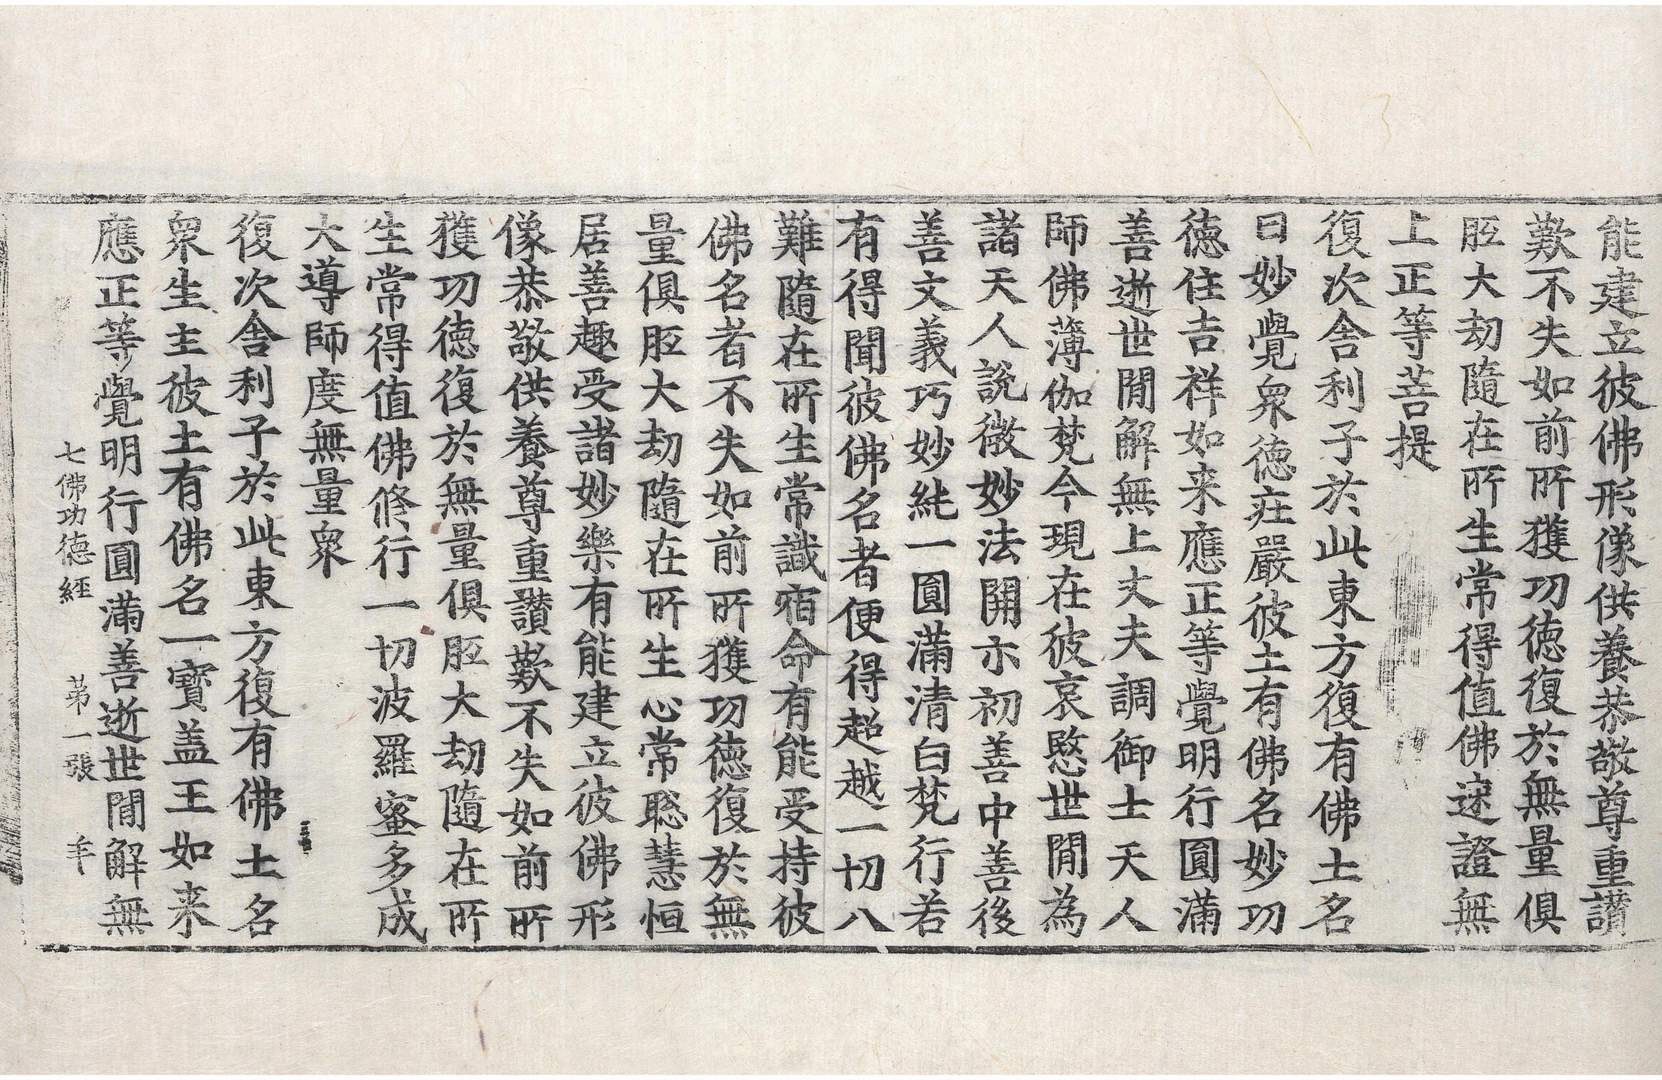 能建立彼佛形像供養恭敬尊重讃
歎不失如前所獲功徳復於無量俱
胝大劫隨在所生常得值佛速證無
上正等菩提
復次舍利子於此東方復有佛土名
曰妙覺衆徳莊嚴彼土有佛名妙功
徳住吉祥如来應正等覺明行圓滿
善逝世閒解無上丈夫調御士天人
師佛薄伽梵今現在彼哀愍世閒為
諸天人說微妙法開示初善中善後
善文義巧妙純一圓滿清白梵行若
有得聞彼佛名者便得超越一切八
難隨在所生常識宿命有能受持彼
佛名者不失如前所獲功徳復於無
量俱胝大劫隨在所生心常聡慧恒
居善趣受諸妙樂有能建立彼佛形
像恭敬供養尊重讃歎不失如前所
獲功徳復於無量俱胝大劫隨在所
生常得值佛修行一切波羅蜜多成
大導師度無量衆
復次舍利子於此東方復有佛土名
衆生主彼土有佛名一寳盖王如来
應正等覺明行圓滿善逝世閒解無
七佛功德經 第一張 羊